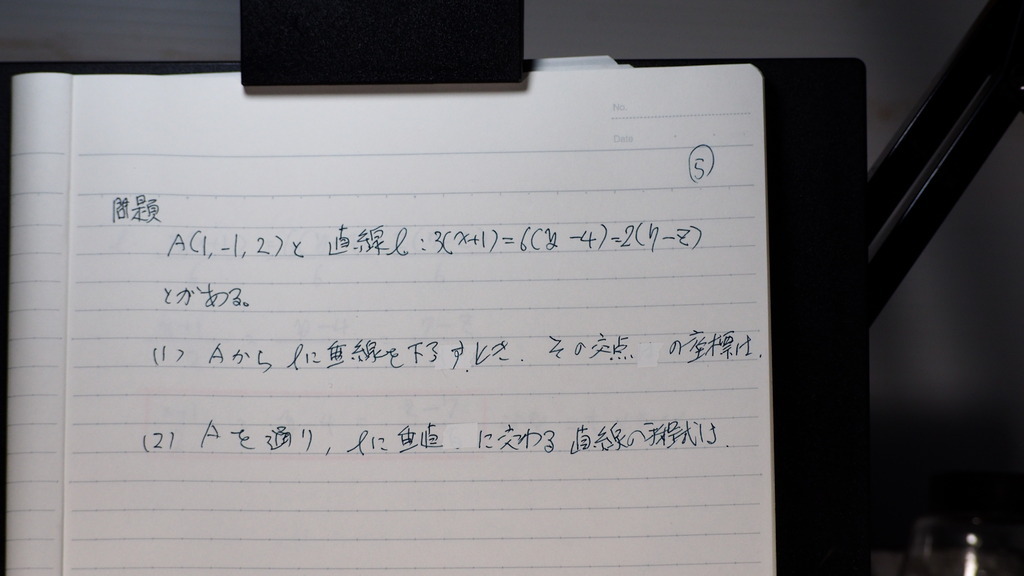 No.
Date
⑤
問題
A(1,-1,2)と 直線l:3(x+1)=6(y-4)=2(7-z)
とがある。
(1) Aからlに垂線を下ろすとき. その交点 の座標は.
(2) Aを通り, lに垂直 に交わる直線の方程式は.